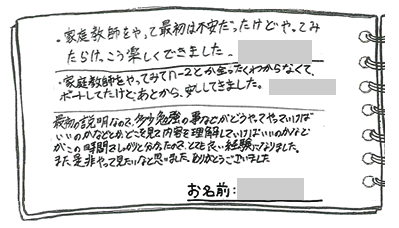 ・家庭教師をやって最初は不安だったけどやってみ
たらけっこう楽しくできました。
・家庭教師をやってみてn-2とか全ったくわからなくて、
ボートしてたけど、あとから、安心してきました。
最初の説明なので、多少勉強の事などがどうやってやっていけば
いいのかなどとか、どこを見て内容を理解していけばいいのかなど
が、この時間でしがりと分かたので、とても良い経験になりました。
また、是非やって見たいなと思いました。ありがとうございました
お名前: